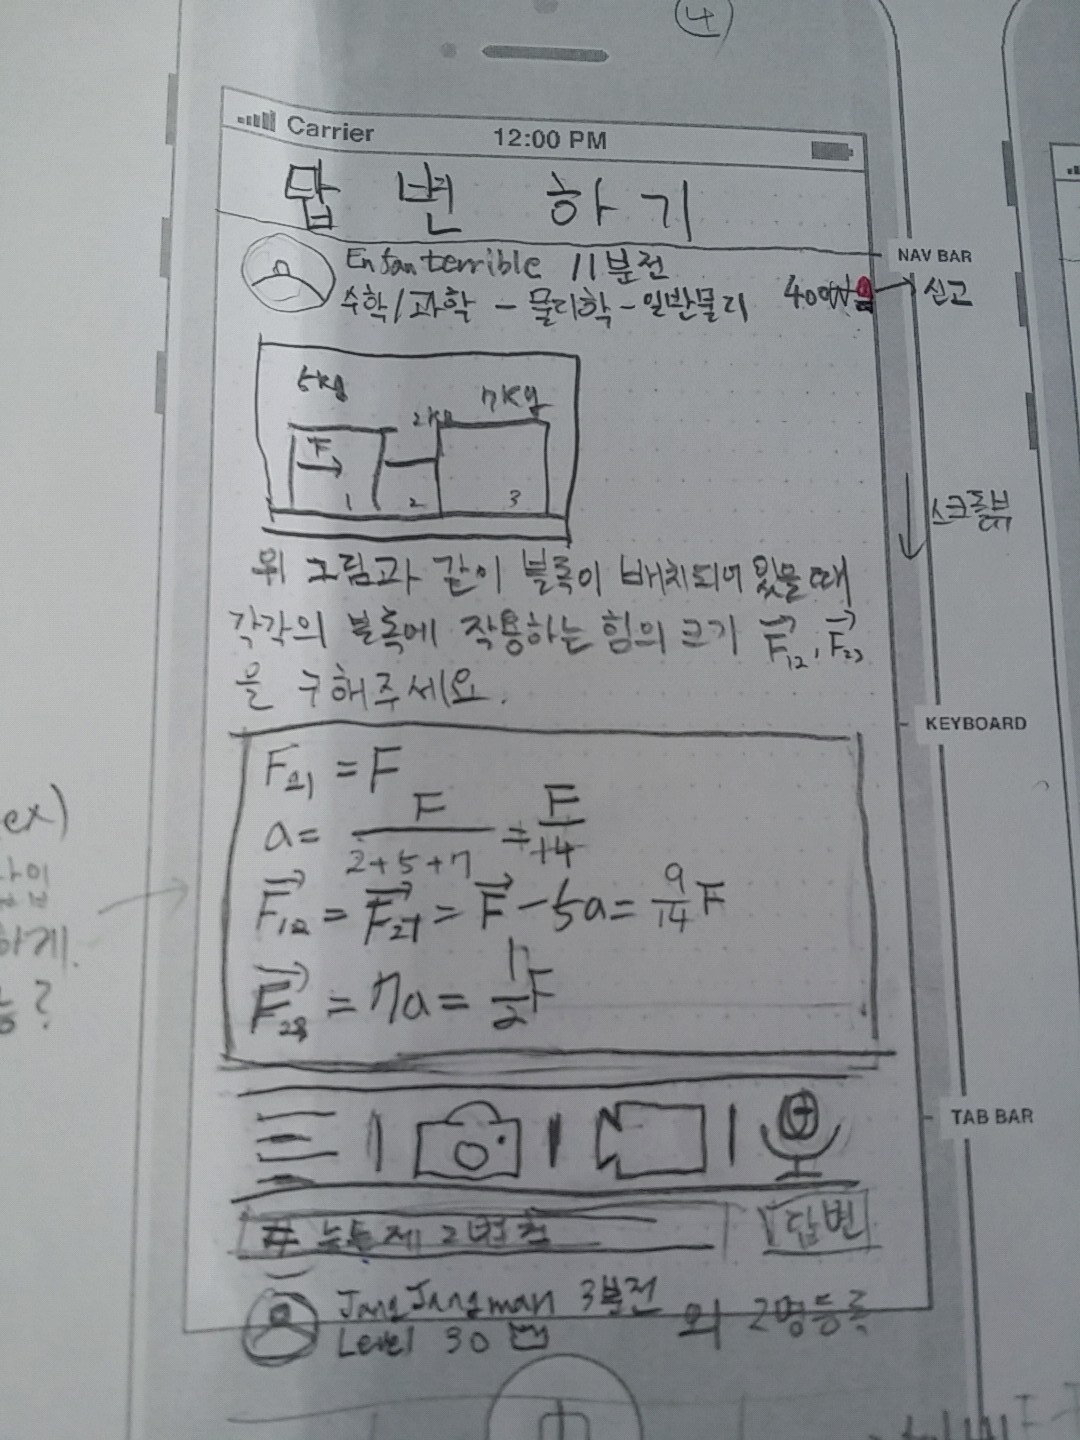 4
Carrier 12:00 PM
답변하기
NAV BAR
Enfanterrible 11분전
수학/과학 - 물리학 - 일반물리 400W
신고
5kg 2kg 7kg
F
1 2 3
스크롤뷰
위 그림과 같이 블록이 배치되어 있을 때
각각의 블록에 작용하는 힘의 크기 F₁₂, F₂₃
을 구해주세요.
KEYBOARD
F₂₁ = F
a = F/(2+5+7) = F/14
F₁₂ = F₂₁ = F - 5a = 9/14 F
F₂₃ = 7a = 1/2 F
ex)
하게
?
TAB BAR
# 뉴튼 제 2법칙 답변
JangJangman 3분전
Level 30 외 2명 등록